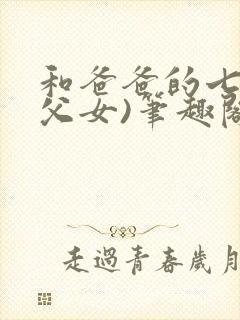 和爸爸的七
父女)筆趣閣
走過青春歲月